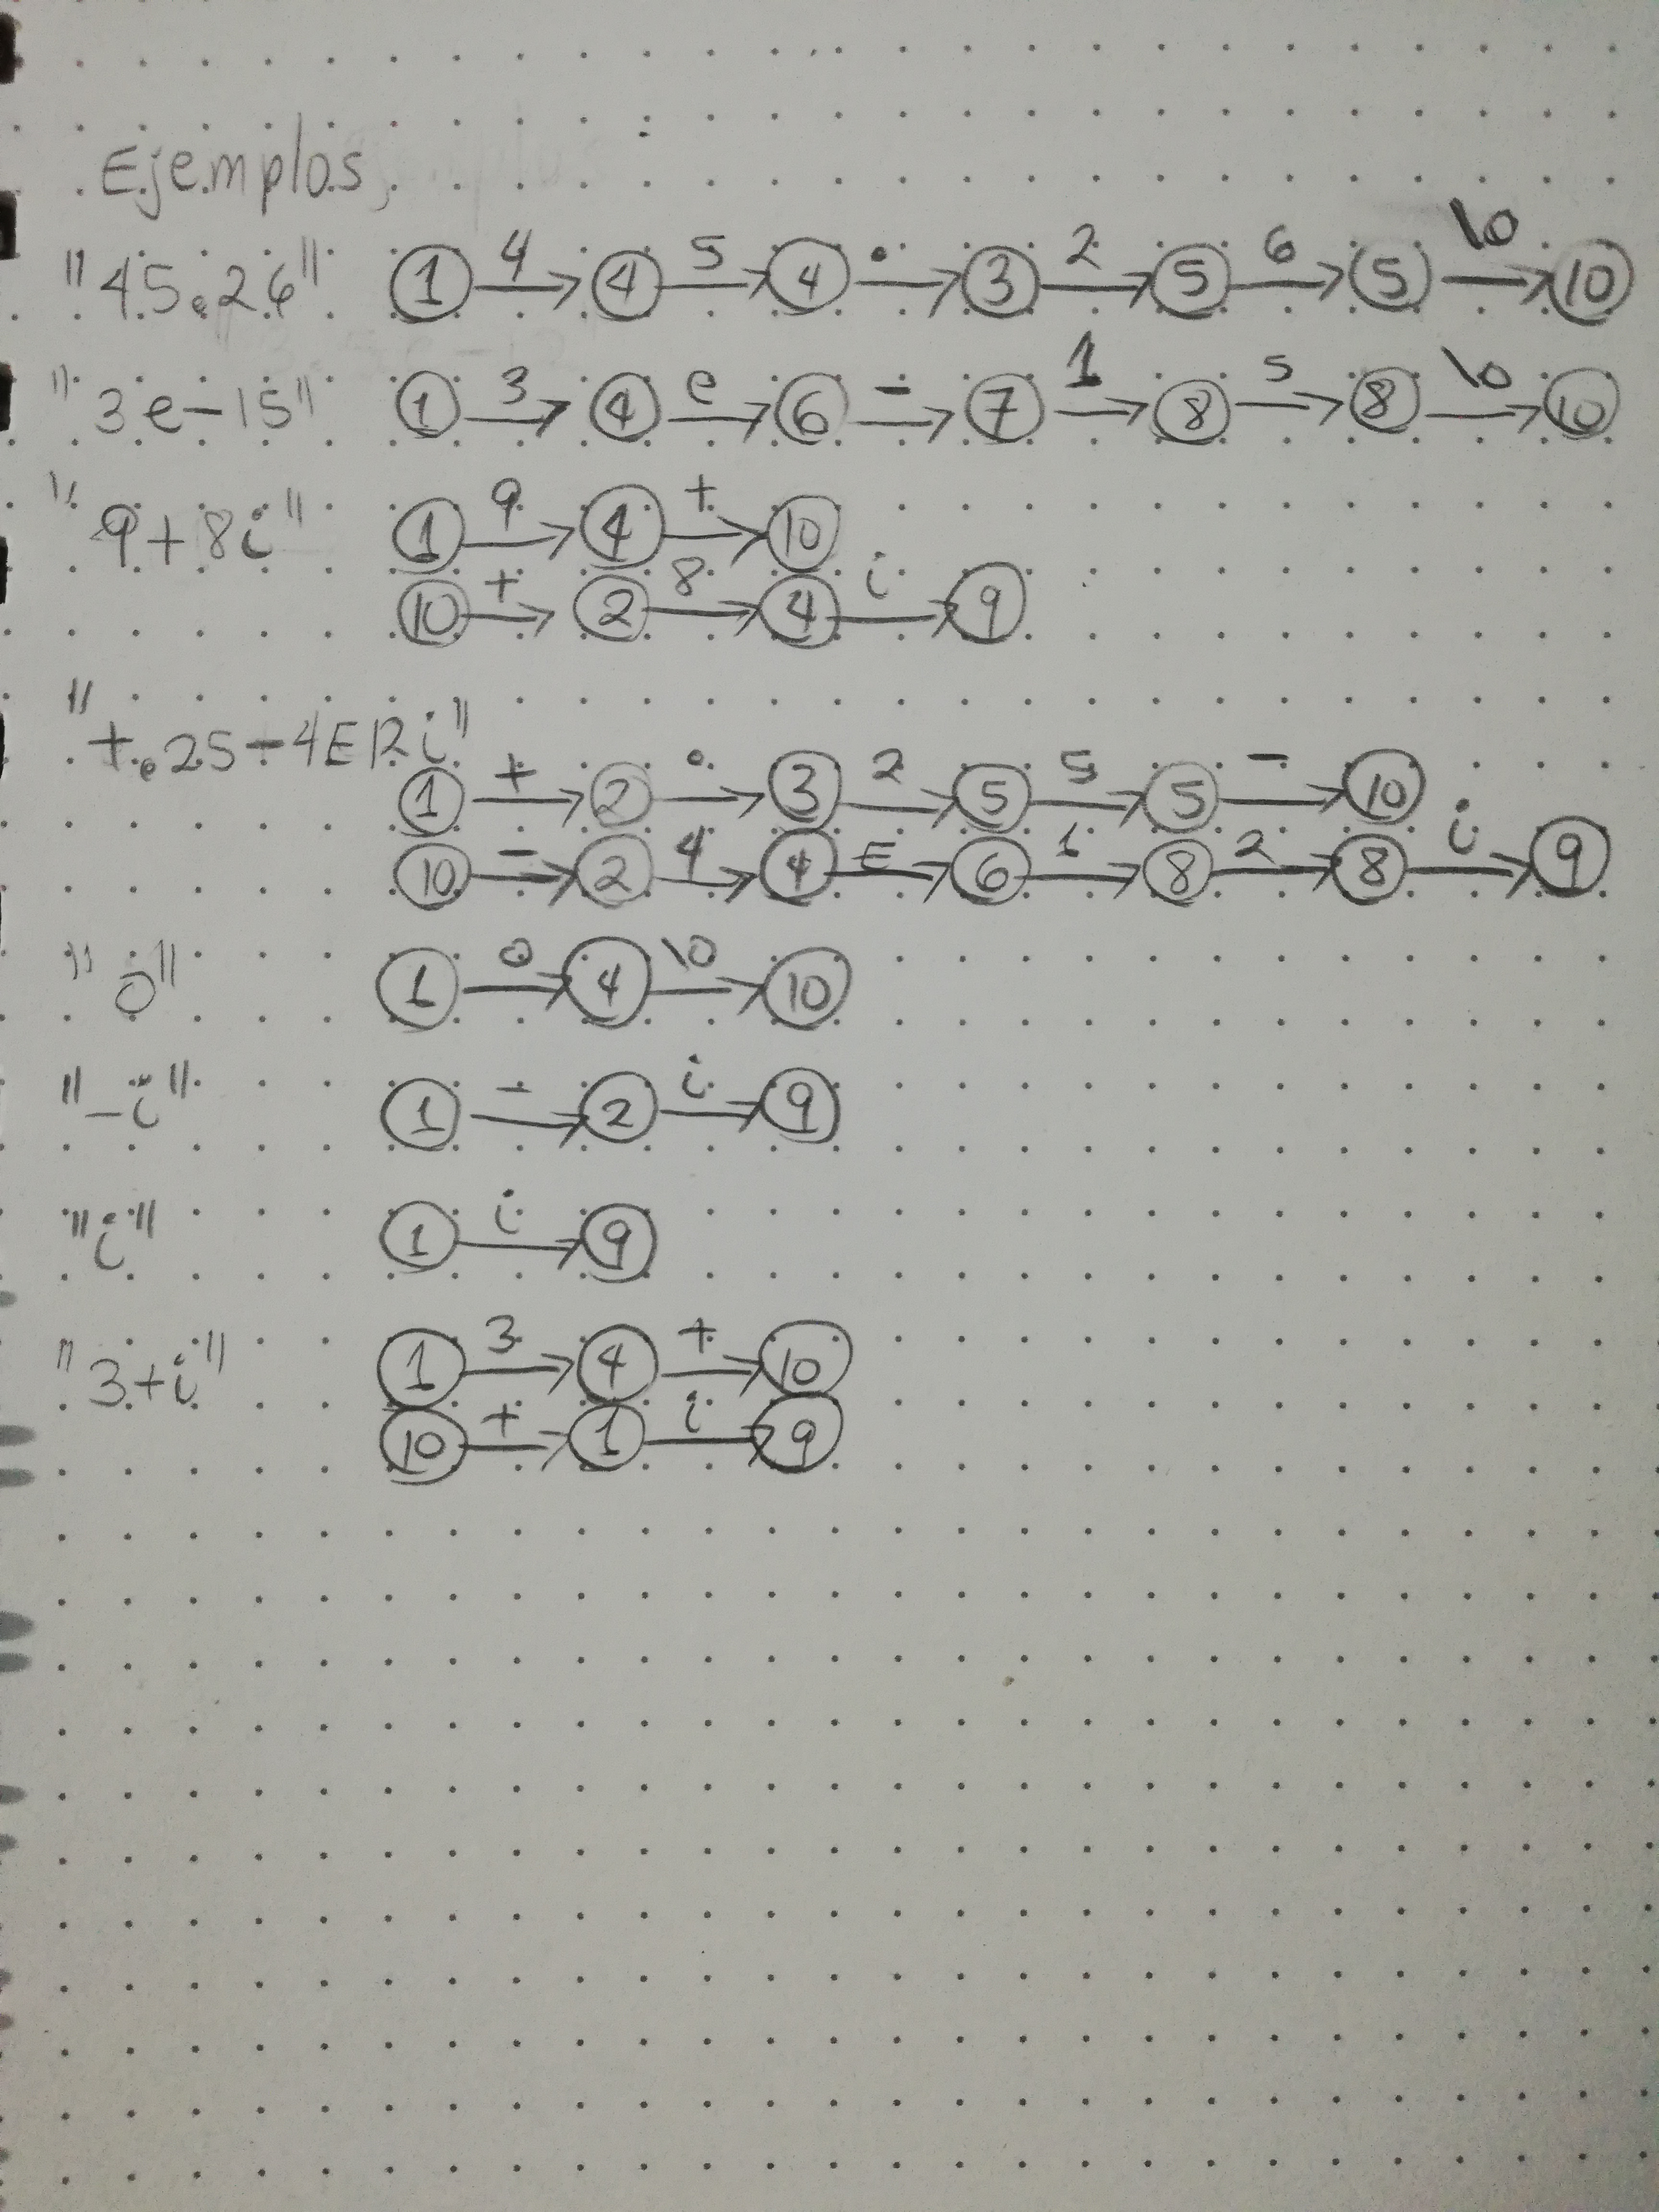 Ejemplos,
"45.26" 1 4 4 5 4 . 3 2 5 6 5 \0 10
"3e-15" 1 3 4 e 6 - 7 1 8 5 8 \0 10
"9+8i" 1 9 4 + 10
10 + 2 8 4 i 9
"+.25-4E12i"
1 + 2 . 3 2 5 5 5 - 10
10 - 2 4 4 E 6 1 8 2 8 i 9
"0" 1 0 4 \0 10
"-i" 1 - 2 i 9
"i" 1 i 9
"3+i" 1 3 4 + 10
10 + 1 i 9